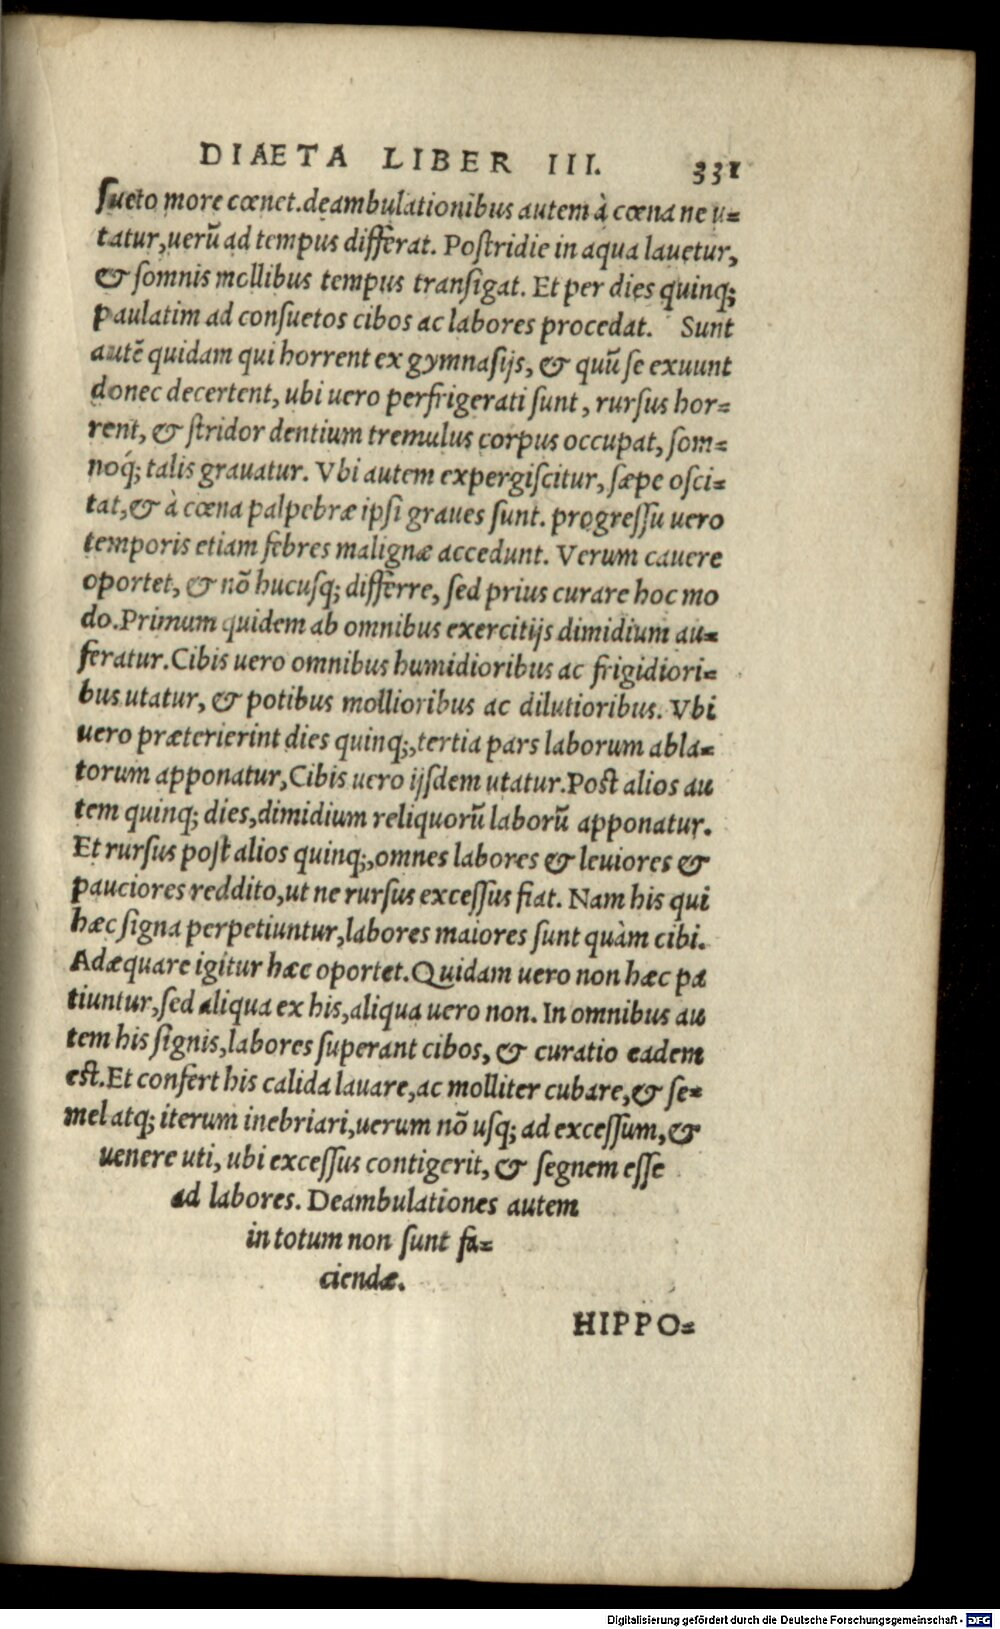 DIAETA LIBER III. 331
sueto more cœnet. deambulationibus autem à cœna ne u=
tatur, uerũ ad tempus differat. Postridie in aqua lauetur,
& somnis mollibus tempus transigat. Et per dies quinq;
paulatim ad consuetos cibos ac labores procedat. Sunt
autẽ quidam qui horrent ex gymnasijs, & quũ se exuunt
donec decertent, ubi uero perfrigerati sunt, rursus hor=
rent, & stridor dentium tremulus corpus occupat, som=
noq́; talis grauatur. Vbi autem expergiscitur, sæpe osci=
tat, & à cœna palpebræ ipsi graues sunt. progressu uero
temporis etiam febres malignæ accedunt. Verum cauere
oportet, & nõ hucusq; differre, sed prius curare hoc mo
do. Primum quidem ab omnibus exercitijs dimidium au=
feratur. Cibis uero omnibus humidioribus ac frigidiori=
bus utatur, & potibus mollioribus ac dilutioribus. Vbi
uero præterierint dies quinq;, tertia pars laborum abla=
torum apponatur, Cibis uero ijsdem utatur. Post alios au
tem quinq; dies, dimidium reliquorũ laborũ apponatur.
Et rursus post alios quinq;, omnes labores & leuiores &
pauciores reddito, ut ne rursus excessus fiat. Nam his qui
hæc signa perpetiuntur, labores maiores sunt quàm cibi.
Adæquare igitur hæc oportet. Quidam uero non hæc pa
tiuntur, sed aliqua ex his, aliqua uero non. In omnibus au
tem his signis, labores superant cibos, & curatio eadem
est. Et confert his calida lauare, ac molliter cubare, & se=
mel atq; iterum inebriari, uerum nõ usq; ad excessum, &
uenere uti, ubi excessus contigerit, & segnem esse
ad labores. Deambulationes autem
in totum non sunt fa=
ciendæ.
HIPPO=
Digitalisierung gefördert durch die Deutsche Forschungsgemeinschaft - DFG